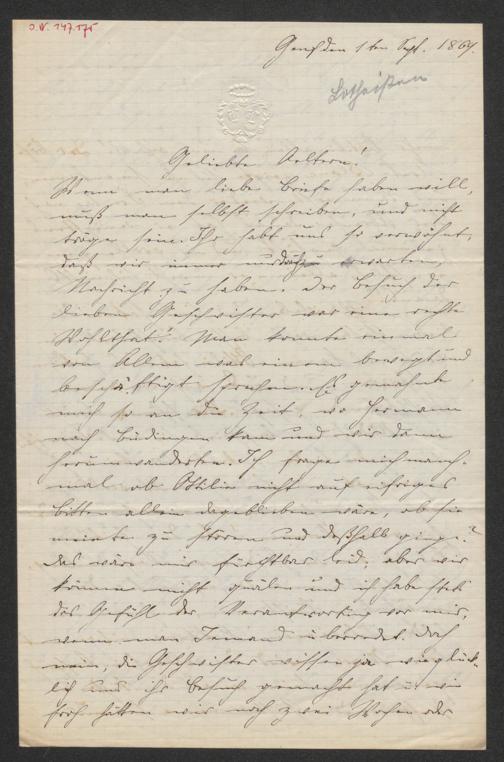 J.N. 147.175
Genf den 1ten Sept. 1869.
Lotheißen
Geliebte Aeltern!
Wenn man liebe Briefe haben will,
muß man selbst schreiben, und nicht
träge sein. Ihr habt uns so verwöhnt,
daß wir immer erwarten,
Nachricht zu haben. Der Besuch der
lieben Geschwister war eine rechte
Wohlthat. Man konnte einmal
von Allem was einen bewegt und
beschäftigt sprechen. Es gemahnte
mich so an die Zeit, wo Hermann
nach Büdingen kam und wir dann
herumwanderten. Ich frage mich manch-
mal ob Ottilie nicht auf eifriges
Bitten allein dageblieben wäre, ob sie
meinte zu stören und deßhalb ginge?
Das wäre mir furchtbar leid, aber wir
können nicht quälen und ich habe stets
das Gefühl der Verantwortung vor mir,
wenn man Jemand überredet. Doch
nein, die Geschwister wissen ja wie glück-
lich uns ihr Besuch gemacht hat u. wie
froh hätten wir noch zwei Wochen oder